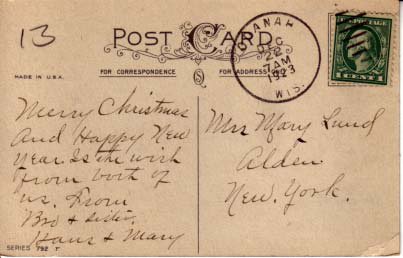 13
POST CARD
MADE IN U.S.A.
FOR CORRESPONDENCE
FOR ADDRESS
DEC
22
7 AM
1923
WIS.
U.S. POSTAGE
1 CENT 1
Merry Christmas
And Happy New
Year Is the wish
From both of
us. From
Bro & Sister,
Hans & Mary
Mrs Mary Lund
Alden
New. York.
SERIES 792 F